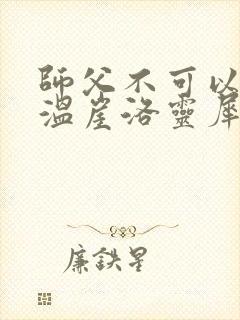 師父不可以
溫崖洛靈犀
廉鐵星